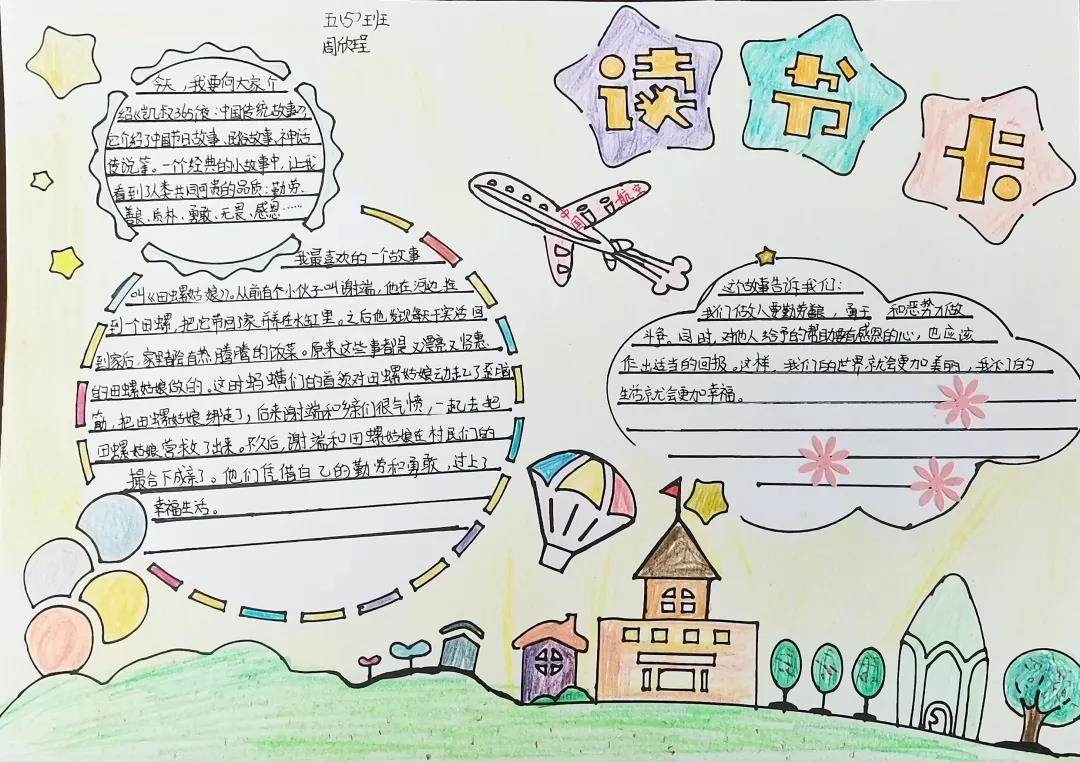 五(5)班
周欣珵
读书卡
今天，我要向大家介
绍《凯叔365夜：中国传统故事》，
它介绍了中国节日故事、民俗故事、神话
传说等。一个经典的小故事中，让我
看到了人类共同可贵的品质：勤劳、
善良、质朴、勇敢、无畏、感恩……
中国航空
我最喜欢的一个故事
叫《田螺姑娘》。从前有个小伙子叫谢端，他在河边捡
到一个田螺，把它带回家并养在水缸里。之后他发现每天干完活回
到家后，家里都会有热腾腾的饭菜。原来这些事都是又漂亮又贤惠
的田螺姑娘做的。这时蚂蟥们的首领对田螺姑娘动起了歪脑
筋，把田螺姑娘绑走了，后来谢端和乡亲们很气愤，一起去把
田螺姑娘营救了出来。然后，谢端和田螺姑娘在村民们的
撮合下成亲了。他们凭借自己的勤劳和勇敢，过上了
幸福生活。
这个故事告诉我们：
我们做人要勤劳善良，勇于和恶势力做
斗争。同时，对他人给予的帮助要有感恩的心，也应该
作出适当的回报。这样，我们的世界就会更加美丽，我们的
生活就会更加幸福。